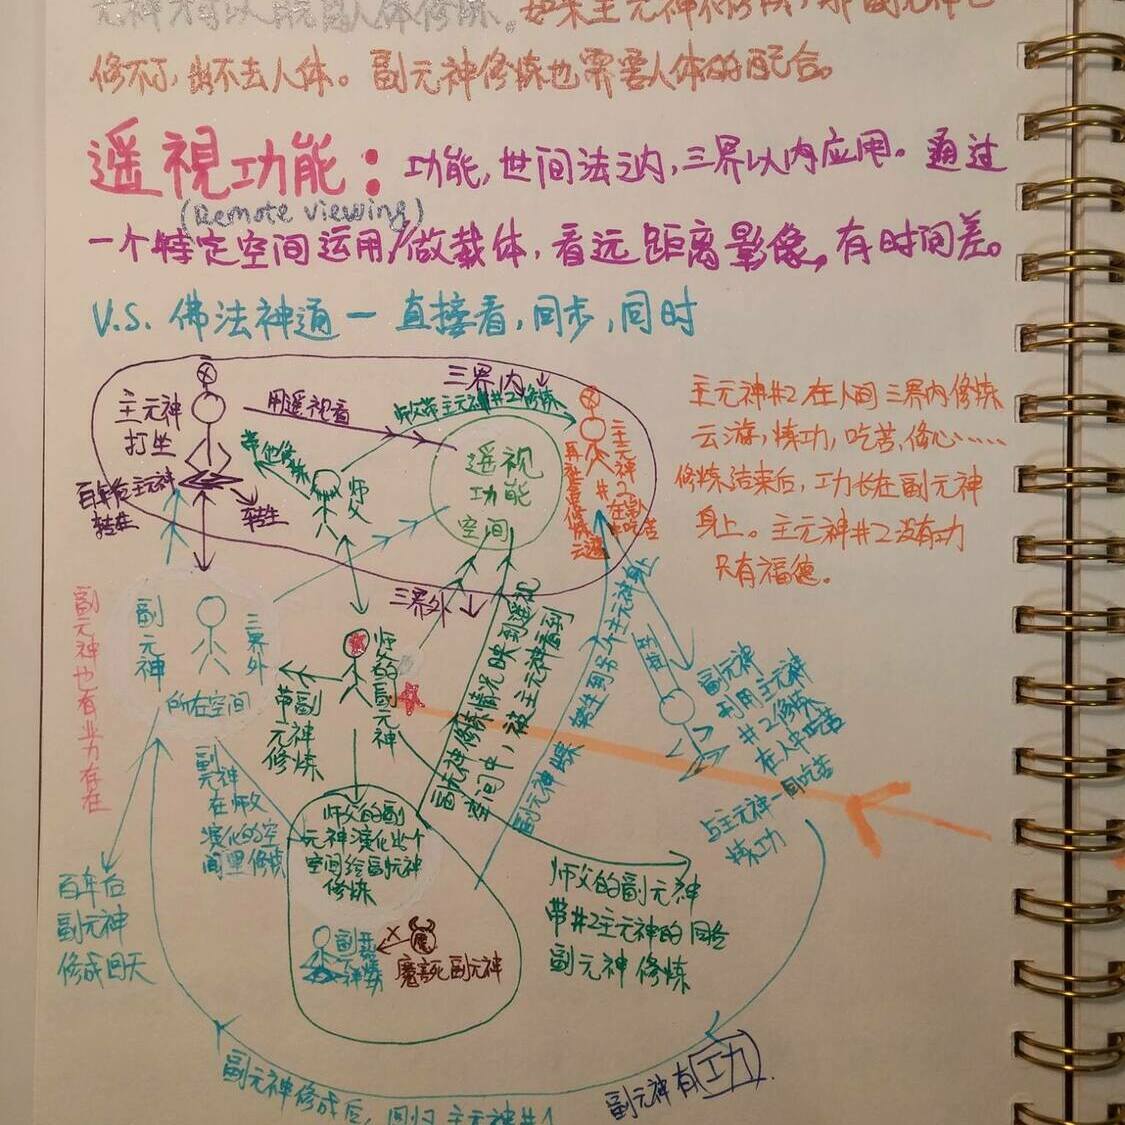 如果主元神不修炼，那副元神也
修不了，出不去人体。副元神修炼也需要人体的配合。
遥視功能：功能，世间法之内，三界以内应用。通过
(Remote viewing)
一个特定空间运用/做载体，看远距离影像，有时间差。
V.S. 佛法神通一直接看，同步，同时
三界内
主元神
打坐
用遥视看
师父带主元神#2修炼
遥视
功能
空间
师父
百年后主元神
转生
转生
主元神#2在人间三界内修炼
云游，炼功，吃苦，修心……
修炼结束后，功长在副元神
身上。主元神#2没有功
只有福德。
三界外
副元神
三界外
所在空间
副元神也有业力存在
师父的副元神
带副
元神
修炼
副元神
在师父
演化的空
间里修炼
师父的副
元神演化出个
空间给副元神
修炼
副元神修炼情况映到遥视
空间中，被主元神看到
副元神
利用主元神
#2修炼
在人中吃苦
与主元神一同吃苦
炼功
百年后
副元神
修成回天
师父的副元神
带#2主元神的
副元神修炼
魔
魔害死副元神
副元神修成后，回归主元神#1
副元神有功